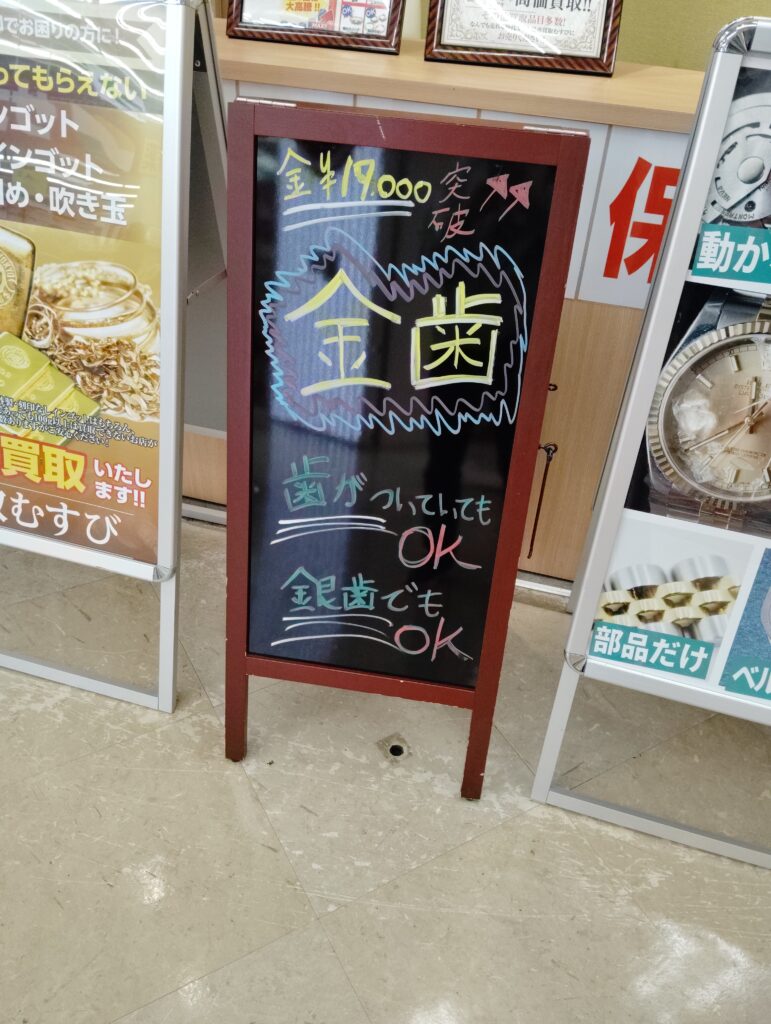 でお困りの方に!
ってもらえない
ンゴット
インゴット
固め・吹き玉
買取 いたします!!
取むすび
大高騰!!
高価買取!!
金¥19,000 突破
金歯
歯がついていても
OK
銀歯でも
OK
保
動か
部品だけ
ベル